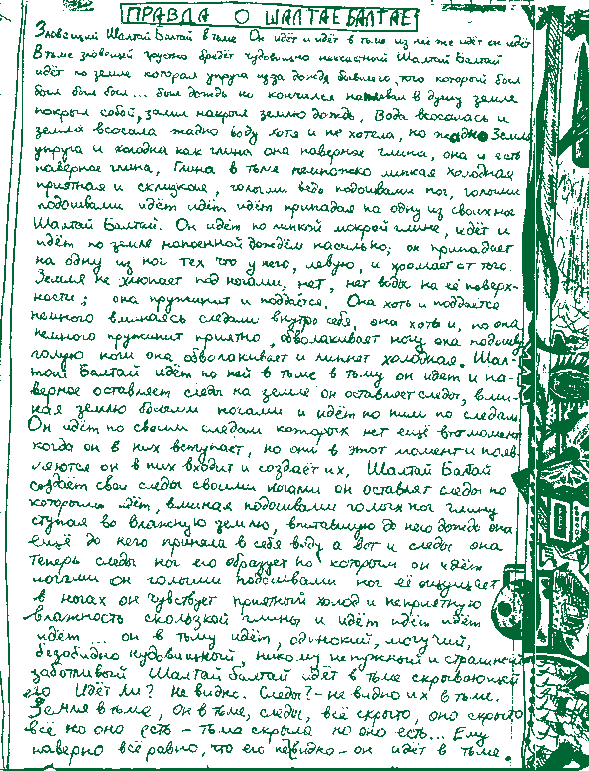 ПРАВДА О ШАЛТАЕ БАЛТАЕ
Зловещий Шалтай Балтай в тьме Он идёт и идёт в тьме из неё же идёт он идёт
В тьме зловещий грустно бредёт чудовищно несчастный Шалтай Балтай
идёт по земле которая упруга из за дождя бывшего, того который был
был был был... был дождь но кончился наплевал в душу земле
покрыл собой, залил накрыл землю дождь, Вода всосалась и
земля всосала жадно воду хотя и не хотела, но жадно Земля
упруга и холодна как глина она наверное глина, она и есть
наверное глина, Глина в тьме немножко липкая холодная
приятная и склизкая, голыми ведь подошвами ног, голыми
подошвами идёт идёт идёт припадая на одну из своих ног
Шалтай Балтай. Он идёт по липкой мокрой глине, идёт и
идёт по земле напоенной дождём насильно; он припадает
на одну из ног тех что у него, левую, и хромает от того.
Земля не хлюпает под ногами, нет, нет воды на её поверх-
ности; она пружинит и поддаётся. Она хоть и поддаётся
немного вминаясь следами внутрь себя, она хоть и, но она
немного пружинит приятно, обволакивает ногу она подошву
голую ноги она обволакивает и липнет холодная. Шал-
тай Балтай идёт по ней в тьме в тьму он идет и на-
верное оставляет следы на земле он оставляет следы, вми-
ная землю босыми ногами и идёт по ним по следам
Он идёт по своим следам которых нет ещё в то момент
когда он в них вступает, но они в этот момент и появ-
ляются он в них входит и создаёт их, Шалтай Балтай
создаёт свои следы своими ногами он оставлят следы по
которым идёт, вминая подошвами голых ног глину
ступая во влажную землю, впитавшую до него дождь она
ещё до него приняла в себя воду а вот и следы она
теперь следы ног его образует по которым он идёт
ногами он голыми подошвами ног её ощущает
в ногах он чувствует приятный холод и неприятную
влажность скользкой глины и идёт идёт идёт
идёт ... он в тьму идёт, одинокий, могучий,
безобидно чудовищный, никому не нужный и страшной
заботливый Шалтай балтай идёт в тьме скрывающей
его Идёт ли? Не видно. Следы? - не видно их в тьме.
Земля в тьме, он в тьме, следы, всё скрыто, оно скрыто
всё но оно есть - тьма скрыла но оно есть... Ему
наверно всё равно, что его невидно - он идёт в тьме.